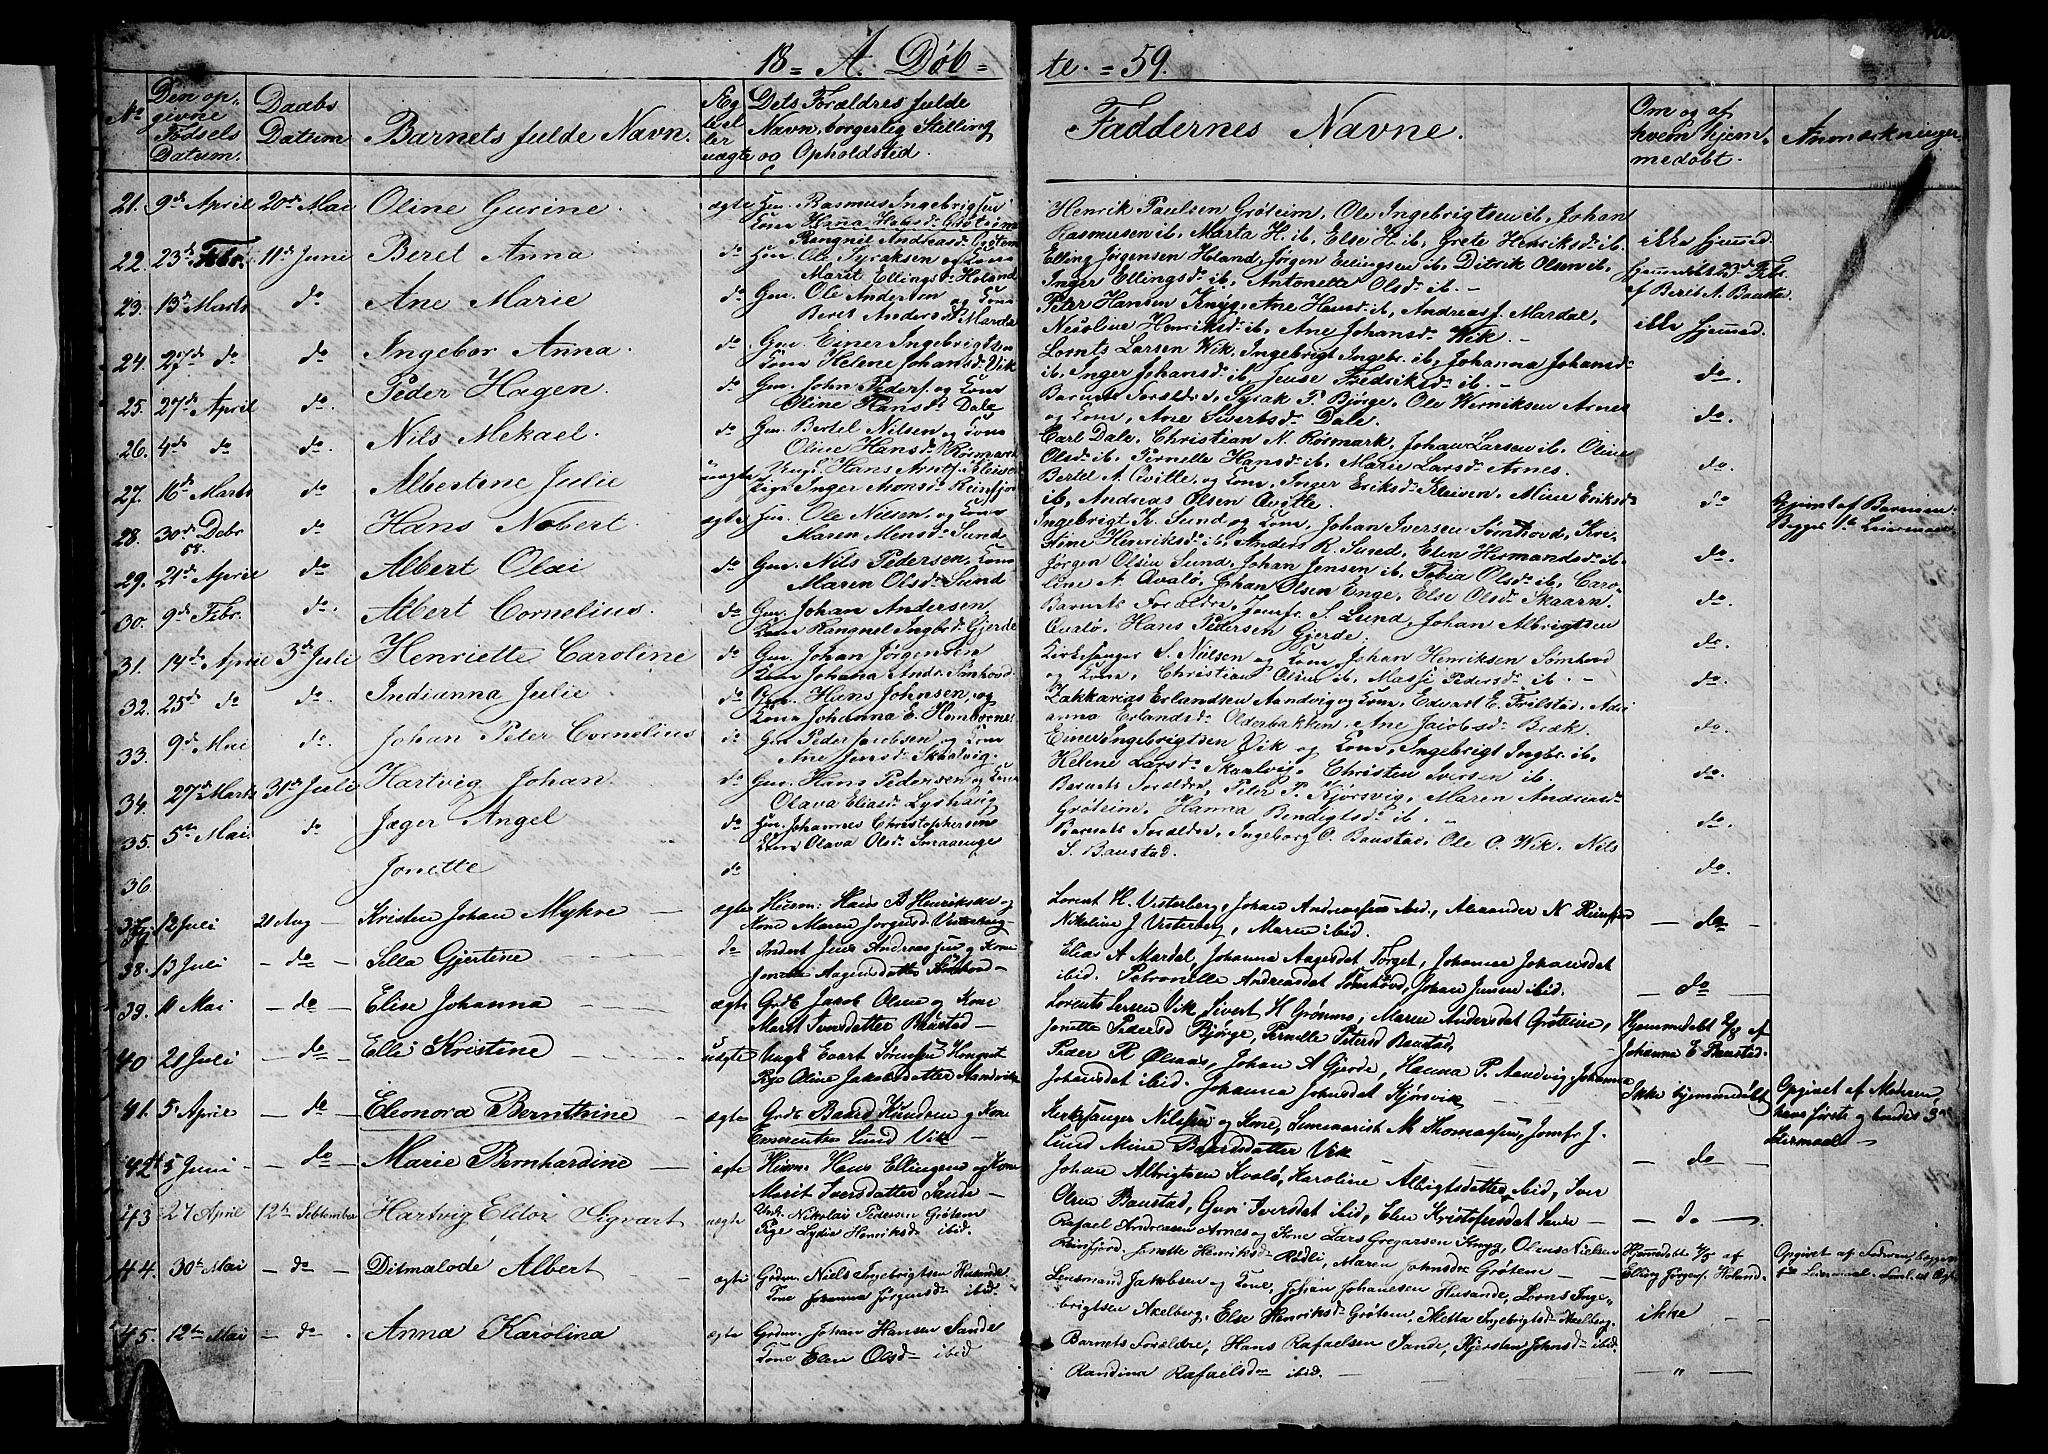 18 = A. Døb = te. = 59.
No
Den op-
givne
Fødsels
Datum.
Daabs
Datum
Barnets fulde Navn.
Æg
te el
ler
uægte
Dets Forældres fulde
Navn, borgerlig Stilling
og Opholdsted.
Faddernes Navne.
Om og af
hvem hjem-
medøbt.
Anmærkninger
21. 9de April 20de Mai Oline Gurine. ægte Gm. Rasmus Ingebrigtsen
Kone Hana Habsd. Grøteim
Henrik Paulsen Grøteim, Ole Ingebrigtsen ib, Johan
Rasmusen ib, Marta H. ib, Else H. ib, Grete Henriksd. ib.
ikke hjemmed.
22. 23de Febr. 11te Juni Beret Anna do Ole Syraksen og Kone
Marit Ellingsd. Holand
Elling Jørgensen Holand, Jørgen Ellingsen ib, Ditrik Olsen ib,
Inger Ellingsd. ib, Antonette Olsd. ib. -
af Berit A. Baustad.
23. 13de Marts do Ane Marie do Gm. Ole Andersen og Kone
Beret Andersd. Mardal
Peter Hansen Knyg, Ane Hansd. ib, Andreas J. Mardal,
Nicoline Henriksd. ib, Ane Johansd. Wik. -
ikke hjemmed.
24. 27de do do Ingebor Anna. do Gm. Einer Ingebrigtsen
Kone Helene Johansd. Vik
Lornts Larsen Wik, Ingebrigt Ingebr. ib, Johanna Johansd.
ib, Inger Johansd. ib, Fredriksd. ib. -
do.
25. 27de April do. Peder Hagen. do Gm. John Peders. og Kone
Oline Hansd. Dale
Barnets Forældre, Syrak P. Bjørge, Ole Werniksen Arnes
og Kone, Ane Sivertsd. Dale.
do.
26. 4de do do. Nils Mekael. do Gm. Bertel Nilsen og Kone
Oline Hansd. Rørmark
Carl Dale, Christian N. Rørmark, Johan Larsen ib, Oline
Olsd. ib, Pernelle Hansd. ib, Marie Larsd. Arnes.
do.
27. 16de Marts do Albertine Julie uægte Ungk. Hans
Pige Inger Monsd. Reinfjord
Bertel A. Qvitle, og Kone, Inger Eriksd. Kleiven, Mine Eriksd.
ib, Andreas Olsen Qvitle.
do
28. 30de Debr. 58. do. Hans Nobert. ægte Gm. Ole Nilsen, og Kone
Maren Monsd. Sund
Ingebrigt K. Sund og Kone, Johan Iversen Sømhovd, Kri-
stine Henriksd. ib, Anders R. Sund, Elen Hermandsd. ib.
do.
29. 21de April do Albert Olai do Gm. Nils Pedersen, Kone
Maren Olsd. Sund
Jørgen Olsen Sund, Johan Jensen ib, Tobia Olsd. ib, Caro-
line N. Qvalø, Johan Olsen Enge, Else Olsd. Skaarn.
do.
30. 9de Febr. do. Albert Cornelius. do Gm. Johan Andersen,
Kone Rangnel Ingbr.d. Gjerde
Barnets Forældre, Jomfr. S. Lund, Johan Albrigtsen
Qvalø, Hans Pedersen Gjerde.
do.
31. 14de April 3de Juli Henriette Caroline do Gm. Johan Jørgensen
Kone Johana Andr. Sømhovd
Kirkesanger S. Nielsen og Kone, Johan Henriksen Sømhovd
og Kone, Christian Olsen ib, Masji Pedersd. ib. -
do.
32. 25de do do. Indianna Julie do Gm. Hans Johnsen, og
Kone Johanna E. Hombornes
Zakkarias Erlandsen Aandvig og Kone, Edvart E. Frilstad, Adri
anna Erlandsd. Olderbakken, Ane Jacobsd. Bræk.
do.
33. 9de Mai do. Johan Peter Cornelius do Gm Peder Jacobsen og Kone
Ane Jensd. Skaalvig
Einer Ingebrigtsen Vik og Kone, Ingebrigt Ingbr. ib,
Helene Larsd. Skaalvig, Christen Iversen ib.
do.
34. 27de Marts 31te Juli Hartvig Johan do Gm. Hans Pedersen og Kone
Olava Eliasd. Lyshaug
Barnets Forældre, Peter P. Kjørsvig, Maren Andreasd.
Grøteine, Hanna Bendigtsd. ib.
do.
35. 5te Mai do Jæger Angel do Gm. Johannes Christophersen
Kone Olava Olsd. Smaaenge
Barnets Forældre, Ingeborg O. Baustad, Ole O. Wik, Nils
S. Baustad.
do.
36. Jonette do
37. 12 Juli 21 Aug Kristen Johan Mykre ægte Husm: Hans B Henriksen og
Kone Maren Jørgensd. Vesterberg
Lorent H. Vesterberg, Johan Andreassen ibid, Alexander N Reinfjord
Nikoline J Vesterberg, Maren ibid.
- do -
38. 13 Juli - do - Silla Gjertine do Inderst Jens Andreassen og Kone
Jonetta Aagesdatter Sømhovd -
Elias A Mardal, Johanna Aagesdat Torget, Johanna Johansdat
ibid. Petronelle Andreasdat Sømhovd, Johan Jensen ibid.
- do -
39. 11 Mai - do - Elise Johanna ægte Grdb. Jakob Olsen og Kone
Marit Ivarsdatter Baustad -
Lorents Larsen Vik, Sivert H Grønmo, Maren Andersdat Grøteine,
Jonette Pedersd Bjørge, Pernelle Petersd Baustad.
Hjemmedøbt af
Johanna E Baustad.
40 21 Juli - do - Elli Kristine uægte Ungk Evart Sørensen
Pige Oline Jakobsdatter Aandvik
Peder R Ølsaas, Johan A Gjerde, Hanna P. Aandvig, Johanna
Johansdat ibid. Johanna Johnsdat Kjørsvik -
Ikke hjemmedøbt
Opgivet af Moderen
hans første og hendes 3die
Leiermaal -
41. 5 April - do - Eleonora Bernttrine ægte Grdb. Baard Knudsen og Kone
Emerentse Lund Vik -
Kirkesanger Nilssen og Kone, Seminarist M Thomassen, Jomfr J.
Lund Mine Baardsdatter Vik
- do -
42. 5 Juni - do - Marie Bernhardine ægte Husm: Hans Ellingsen og Kone
Marit Iversdatter Sande -
Johan Albrigtsen Kvalø, Karoline Albrigtsdatter ibid, Iver
Olsen Baustad, Guri Iversdat ibid, Elen Kristofersdat Sande -
- do -
43. 27 April 12te September Hartvig Elitor Sigvart uægte Nikolai Pedersen Grøtem
Pige Lydia Henriksd. ibid.
Rafael Andreasen Arnes og Kone Lars Gregarsen Knyg, Olens Nielsen
Reinfjord, Jonette Henriksdr. Rødli, Maren Johnsdr. Grøtem -
Hjemmedøbt af
Elling Jørgens. Holand.
44. 30te Mai - do - Ditmalode Albert ægte Grdm. Niels Ingebrigtsen Husande
Kone Johanna Jørgensd. ibid.
Lensmand Jakobsen og Kone, Johan Johanesen Husande, Lorns Inge-
brigtsen Axelberg, Else Henriksdr. Grøtem, Metta Ingebrigtsd. Axelberg.
ikke
45. 12te Mai - do - Anna Karolina ægte Grdm. Johan Hansen Sande
Kone Elen Olsd. ibid
Barnets Forældre, Hans Rafaelsen Sande, Kjersten Johnsd. ibid.
Randina Rafaelsdr ibid.
"